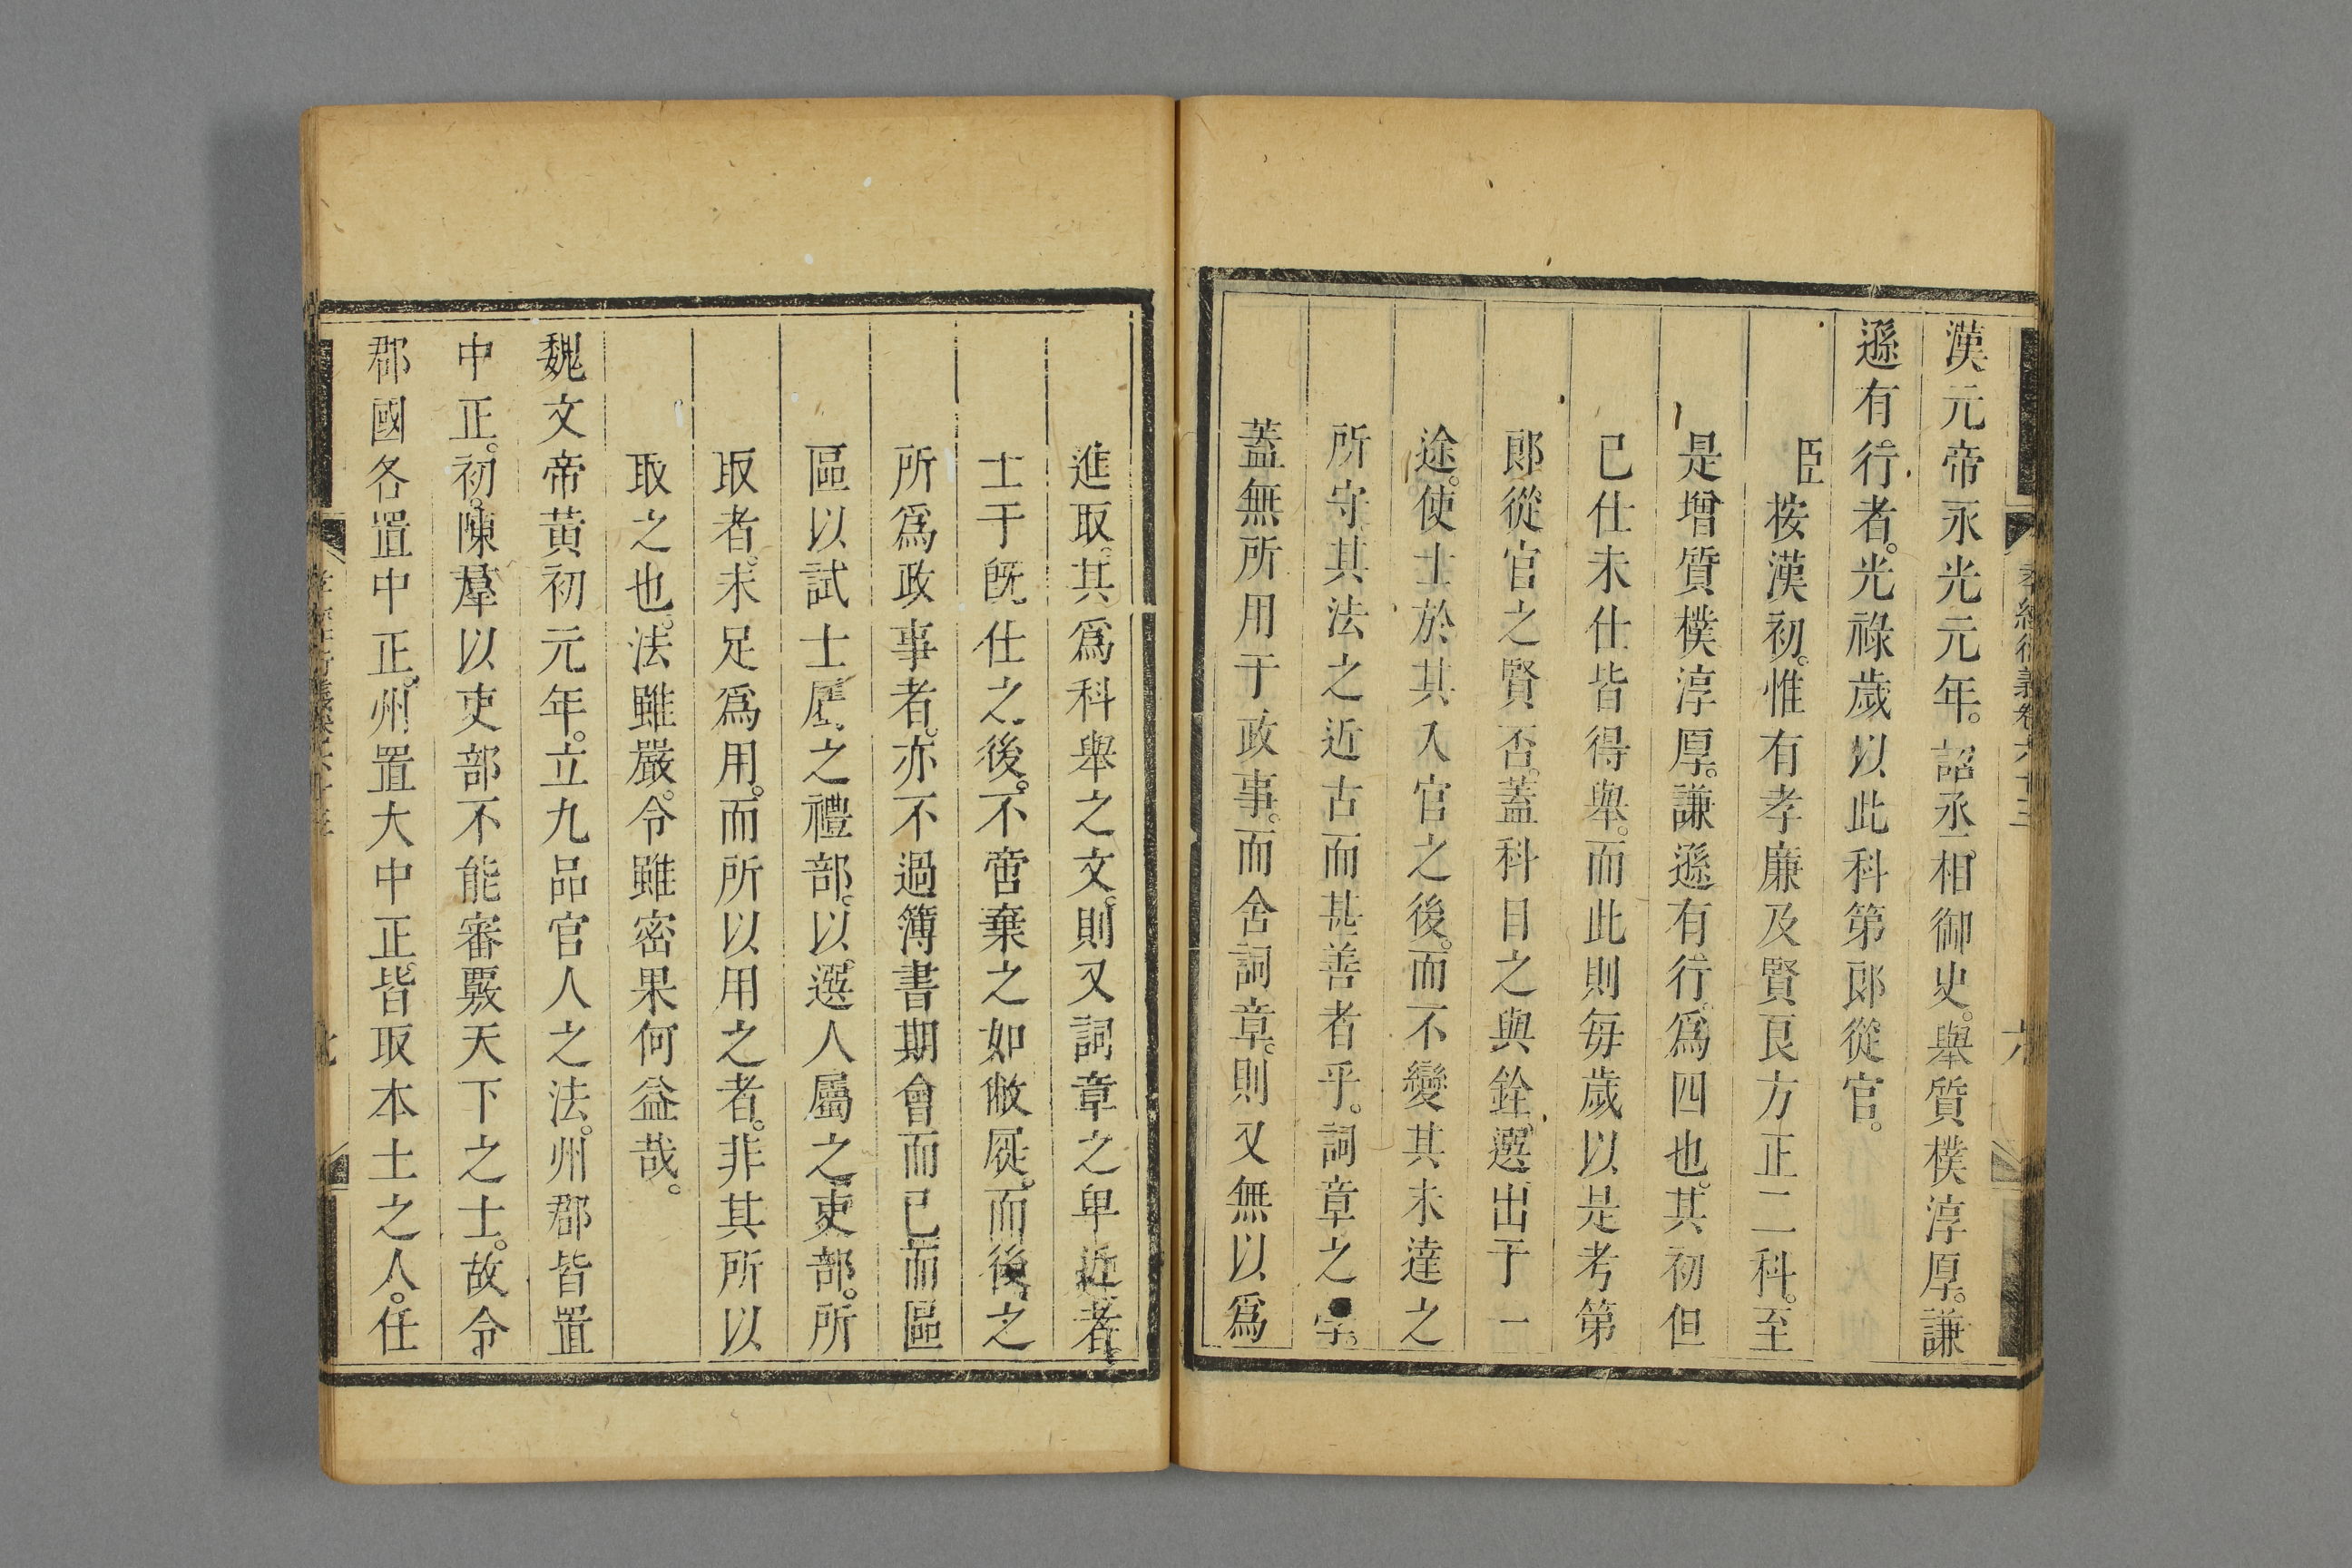 漢元帝永光元年。詔丞相御史。舉質樸淳厚。謙
遜有行者。光祿歲以此科第郎從官。
臣按漢初。惟有孝廉及賢良方正二科。至
是增質樸淳厚。謙遜有行。爲四也。其初但
已仕未仕皆得舉。而此則每歲以是考第
郎從官之賢否。蓋科目之與銓選出于一
途。使士於其入官之後。而不變其未達之
所守其法之近古而甚善者乎。詞章之學。
蓋無所用于政事。而舍詞章。則又無以爲
進取。其爲科舉之文。則又詞章之卑近者。
士于旣仕之後。不啻棄之如敝屣。而後之
所爲政事者。亦不過簿書期會而已而區
區以試士屬之禮部。以選人屬之吏部。所
取者。未足爲用。而所以用之者。非其所以
取之也。法雖嚴。令雖密果何益哉。
魏文帝黃初元年。立九品官人之法。州郡皆置
中正。初。陳羣以吏部不能審覈天下之士。故令
郡國各置中正。州置大中正。皆取本土之人。任